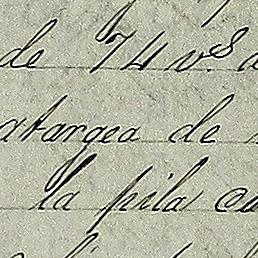 de 74 v.s
atargea de
la pila